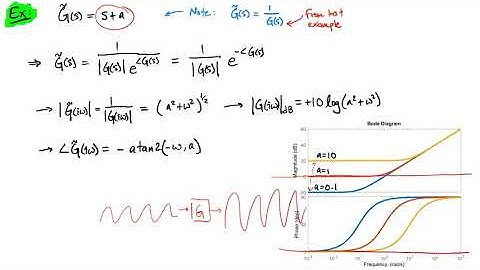 Ex: G̃(s) = s+a ← Note: G̃(s) = 1/G(s) From last example
⇒ G̃(s) = 1/(|G(s)| e^{∠G(s)}) = 1/|G(s)| e^{-∠G(s)}
→ |G̃(iω)| = 1/|G(iω)| = (a²+ω²)^{1/2} → |G(iω)|_{dB} = +10 log(a²+ω²)
→ ∠G̃(iω) = - atan2(-ω, a)
Bode Diagram
Magnitude (dB)
a=10
a=1
a=0.1
→ |G| →
Phase (deg)
Frequency (rad/s)